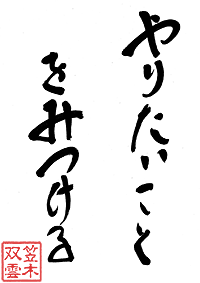 やりたいこと
をみつける
笠木
双雲